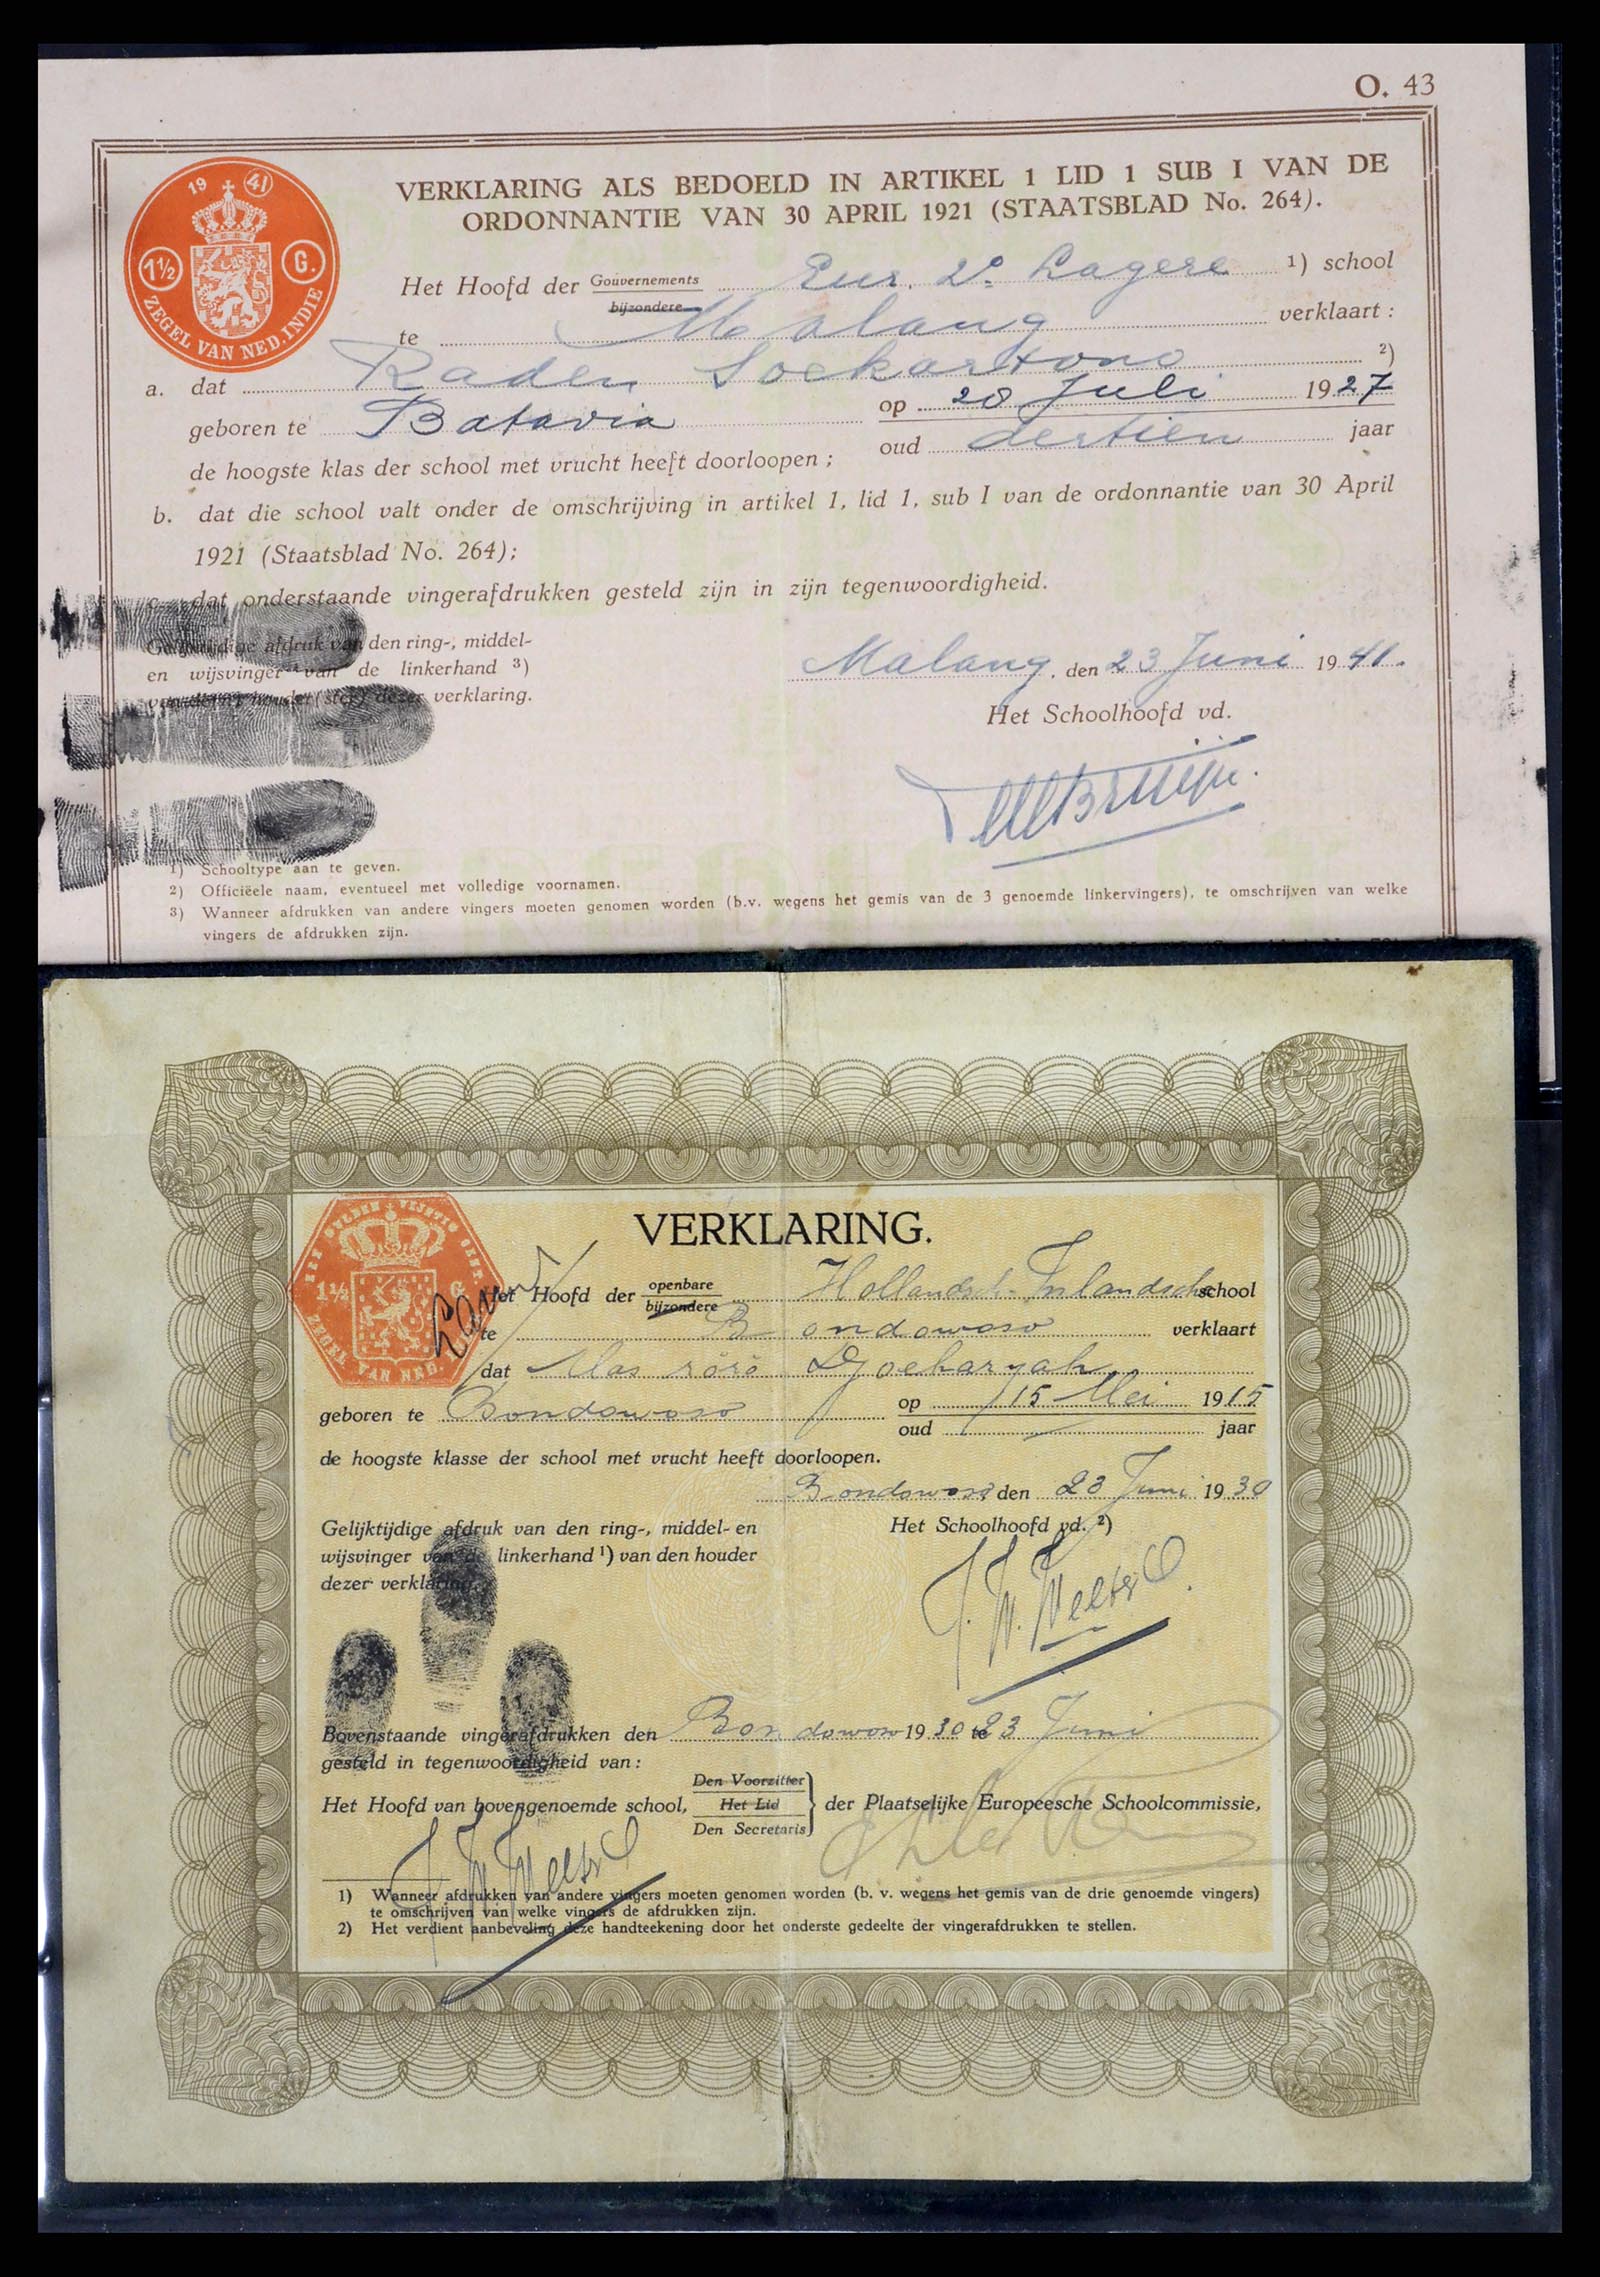 O. 43
VERKLARING ALS BEDOELD IN ARTIKEL 1 LID 1 SUB I VAN DE
ORDONNANTIE VAN 30 APRIL 1921 (STAATSBLAD No. 264).
19 41
1½ G.
ZEGEL VAN NED. INDIE
Het Hoofd der Gouvernements Eur. 2e Lagere 1) school
bijzondere
te Malang verklaart :
a. dat Raden Soekartono 2)
geboren te Batavia op 20 Juli 1927
oud dertien jaar
de hoogste klas der school met vrucht heeft doorloopen ;
b. dat die school valt onder de omschrijving in artikel 1, lid 1, sub I van de ordonnantie van 30 April
1921 (Staatsblad No. 264);
c. dat onderstaande vingerafdrukken gesteld zijn in zijn tegenwoordigheid.
Gelijktijdige afdruk van den ring-, middel-
en wijsvinger van de linkerhand 3)
van den houder (ster) dezer verklaring.
Malang, den 23 Juni 1941.
Het Schoolhoofd vd.
1) Schooltype aan te geven.
2) Officiëele naam, eventueel met volledige voornamen.
3) Wanneer afdrukken van andere vingers moeten genomen worden (b.v. wegens het gemis van de 3 genoemde linkervingers), te omschrijven van welke
vingers de afdrukken zijn.
VERKLARING.
1½ G.
ZEGEL VAN NED.
Het Hoofd der openbare Hollandsch-Inlandsche school
bijzondere
te Bondowoso verklaart
dat Mas roro Djoeharyah
geboren te Bondowoso op 15 Mei 1915
oud jaar
de hoogste klasse der school met vrucht heeft doorloopen.
Bondowoso, den 23 Juni 1930
Gelijktijdige afdruk van den ring-, middel- en
wijsvinger van de linkerhand 1) van den houder
dezer verklaring.
Het Schoolhoofd vd. 2)
Bovenstaande vingerafdrukken den Bondowoso 1930 te 23 Juni
gesteld in tegenwoordigheid van :
Het Hoofd van bovengenoemde school, Den Voorzitter
Het Lid
Den Secretaris
der Plaatselijke Europeesche Schoolcommissie,
1) Wanneer afdrukken van andere vingers moeten genomen worden (b. v. wegens het gemis van de drie genoemde vingers)
te omschrijven van welke vingers de afdrukken zijn.
2) Het verdient aanbeveling deze handteekening door het onderste gedeelte der vingerafdrukken te stellen.